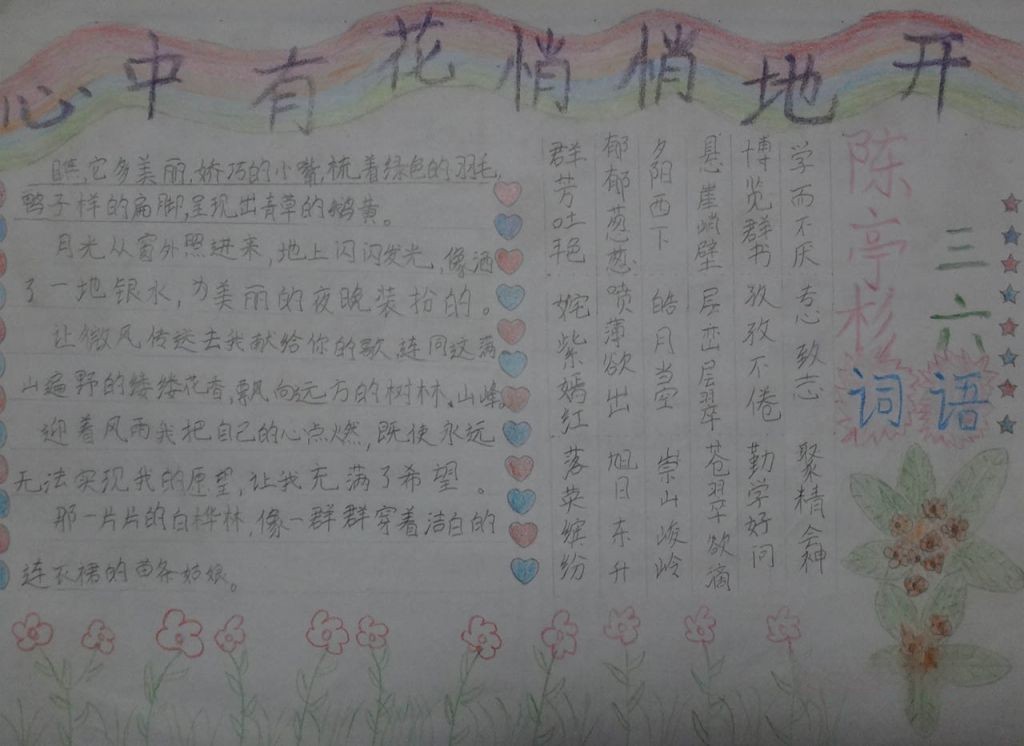 心中有花悄悄地开
瞧,它多美丽,娇巧的小嘴,梳着绿色的羽毛,
鸭子样的扁脚,呈现出青草的鹅黄。
月光从窗外照进来,地上闪闪发光,像洒
了一地银水,为美丽的夜晚装扮的。
让微风传送去我献给你的歌,连同这满
山遍野的缕缕花香,飘向远方的树林、山峰。
迎着风雨我把自己的心点燃,既使永远
无法实现我的愿望,让我充满了希望。
那一片片的白桦林,像一群群穿着洁白的
连衣裙的苗条姑娘。
三六
陈亭杉
词语
学而不厌 专心致志 聚精会神
博览群书 孜孜不倦 勤学好问
悬崖峭壁 层峦层翠 苍翠欲滴
夕阳西下 皓月当空 崇山峻岭
郁郁葱葱 喷薄欲出 旭日东升
群芳吐艳 姹紫嫣红 落英缤纷